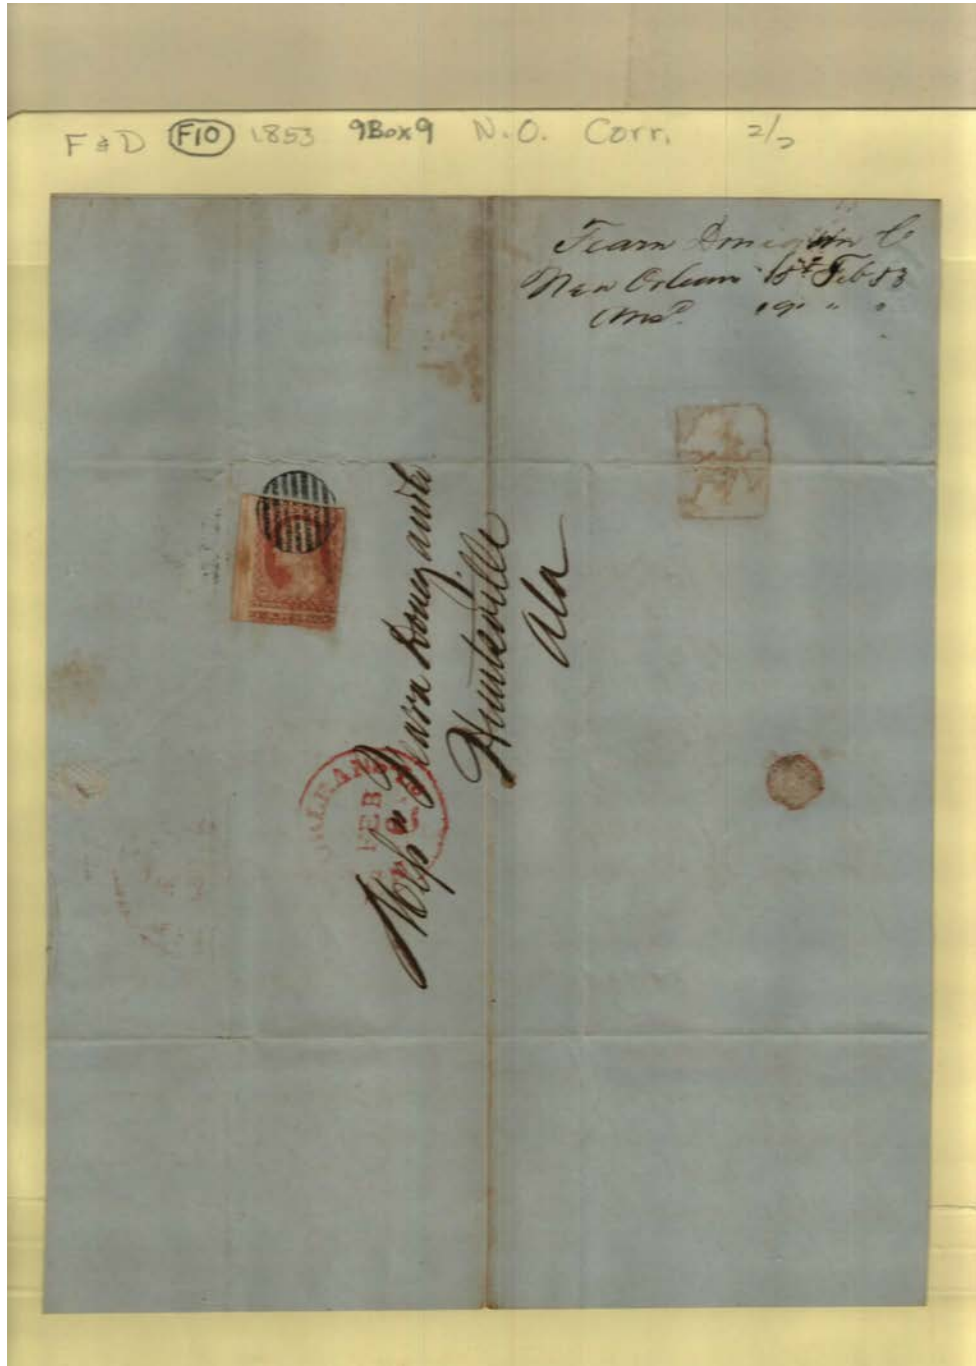 F & D F10 1853 9Box9 N.O. Corr. 2/2
Fearn Donegan Co
New Orleans 15th Feb 53
19 " "
Mess Fearn Donegan &
Huntsville
Ala
ORLEANS
FEB